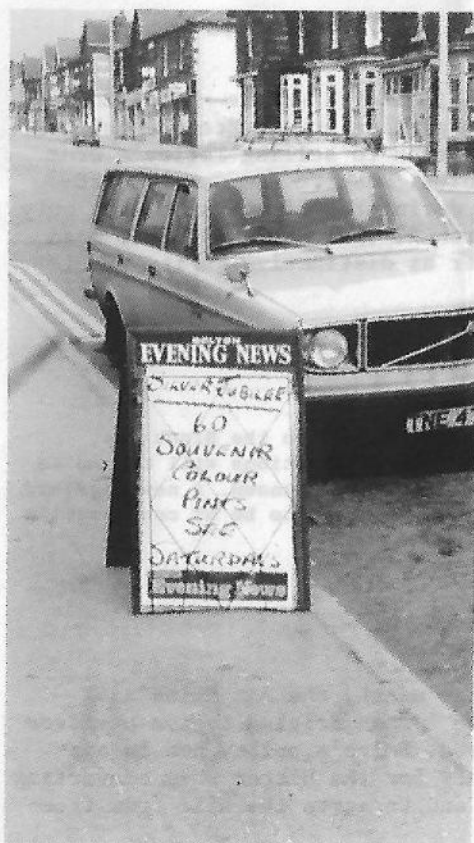 BOLTON
EVENING NEWS
SILVER JUBILEE
60
SOUVENIR
COLOUR
PINTS
SEE
SATURDAYS
Evening News
TNE 4